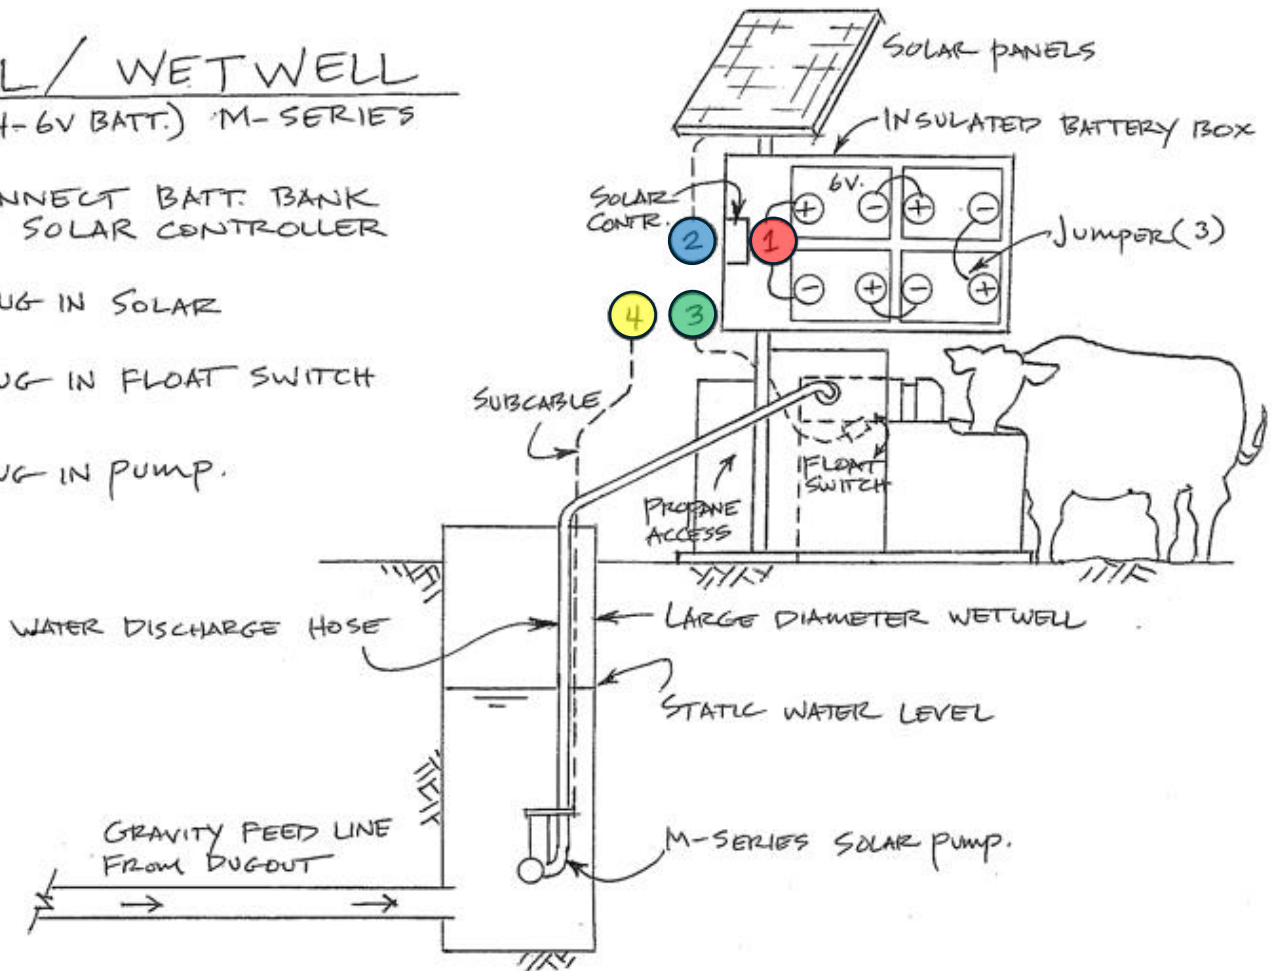 L/ WETWELL
4-6V BATT.) M-SERIES
NNECT BATT. BANK
SOLAR CONTROLLER
UG IN SOLAR
UG IN FLOAT SWITCH
UG IN PUMP.
SOLAR PANELS
INSULATED BATTERY BOX
SOLAR
CONTR.
6V.
+ - + -
- + - +
JUMPER(3)
2
1
4
3
SUBCABLE
FLOAT
SWITCH
PROPANE
ACCESS
WATER DISCHARGE HOSE
LARGE DIAMETER WETWELL
STATIC WATER LEVEL
GRAVITY FEED LINE
FROM DUGOUT
M-SERIES SOLAR PUMP.